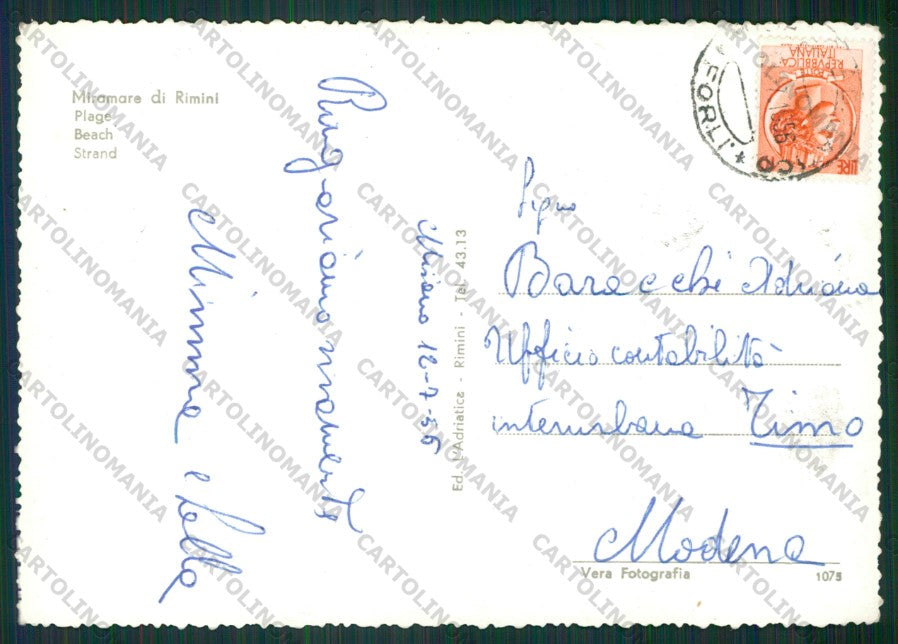 Miramare di Rimini
Plage
Beach
Strand
Ringraziamenti
Mimma e Lella
Misano 12-7-56
Ed. L'Adriatica - Rimini - Tel. 43.13
POSTE
REPVBBLICA
ITALIANA
LIRE
FORLI
Baracchi Adriana
Ufficio contabilità
interurbana Timo
Modena
Vera Fotografia
1075
CARTOLINOMANIA